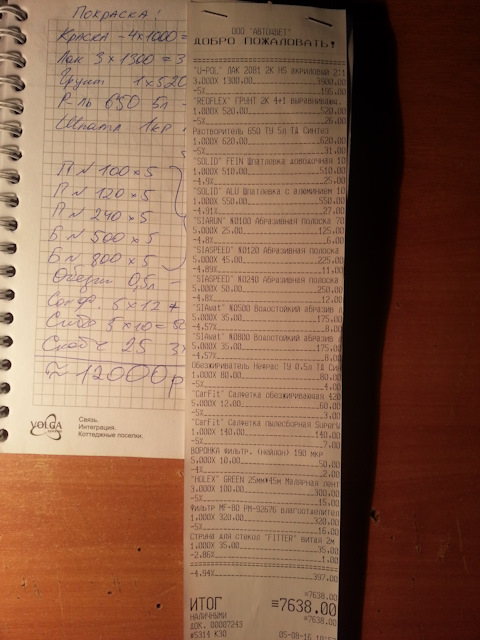 ПОКРАСКА!
Краска - 4x1000=
Лак 3x1300=3
Грунт 1x520
Р-ль 650 5л -
Шпатл 1кр
П N 100x5
П N 120x5
П N 240x5
Б N 500x5
Б N 800x5
Обезж 0,5л -
Салф. 5x12
5x10=50
25
≈12000р
VOLGA
Связь.
Интеграция.
Коттеджные поселки.
ООО "АВТОЦВЕТ"
ДОБРО ПОЖАЛОВАТЬ!
"U-POL" ЛАК 2081 2K HS акриловый 2:1
3.000X 1300.00 3900.00
-5% 195.00
"REOFLEX" ГРУНТ 2K 4+1 выравнивающ.
1.000X 520.00 520.00
-5% 26.00
Растворитель 650 ТУ 5л ТД Синтез
1.000X 620.00 620.00
-5% 31.00
"SOLID" FEIN Шпатлевка доводочная 10
1.000X 510.00 510.00
-4.9% 25.00
"SOLID" ALU Шпатлевка с алюминием 10
1.000X 550.00 550.00
-4.91% 27.00
"SIARUN" N0100 Абразивная полоска 70
5.000X 25.00 125.00
-4.8% 6.00
"SIASPEED" N0120 Абразивная полоска
5.000X 45.00 225.00
-4.89% 11.00
"SIASPEED" N0240 Абразивная полоска
5.000X 50.00 250.00
-4.8% 12.00
"SIAwat" N0500 Водостойкий абразив л
5.000X 35.00 175.00
-4.57% 8.00
"SIAwat" N0800 Водостойкий абразив л
5.000X 35.00 175.00
-4.57% 8.00
Обезжириватель Нефрас ТУ 0.5л ТД Син
1.000X 80.00 80.00
-5% 4.00
"CarFit" Салфетка обезжиривающая 420
5.000X 12.00 60.00
-5% 3.00
"CarFit" Салфетка пылесборная SuperW
1.000X 140.00 140.00
-5% 7.00
ВОРОНКА Фильтр. (нейлон) 190 мкр
5.000X 10.00 50.00
-4% 2.00
"HOLEX" GREEN 25мм*45м Малярная лент
3.000X 100.00 300.00
-5% 15.00
Фильтр MF-80 PM-92676 влагоотделител
1.000X 320.00 320.00
-5% 16.00
Струна для стекол "FITTER" витая 2м
1.000X 35.00 35.00
-2.86% 1.00
-4.94% 397.00
≡7638.00
ИТОГ ≡7638.00
НАЛИЧНЫМИ ≡7638.00
ДОК. 00007243
#5314 К30 05-08-16